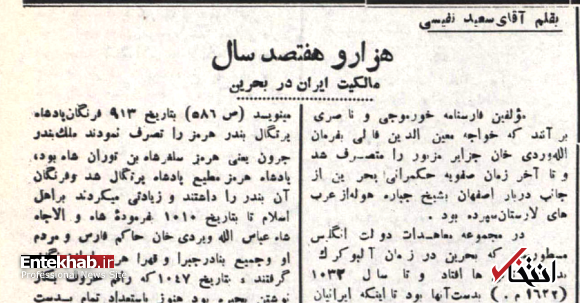 بقلم آقای سعید نفیسی
هزار و هفتصد سال
مالکیت ایران در بحرین
مؤلفین فارسنامه خورموجی و ناصری
بر آنند که خواجه معین الدین فالی بفرمان
اللهوردی خان جزایر مزبور را متصرف شد
و تا آخر زمان صفویه حکمرانی بحرین از
جانب دربار اصفهان بشیخ جباره هوله از عرب
های لارستان سپرده بود .
در مجموعه معاهدات دولت انگلیس
مسطور که بحرین در زمان آلبوکرک
افتاد و تا سال ۱۰۳۳
(۱۶۲۲ م.) بدست آنها بود تا اینکه ایرانیان
مینویسد (ص ۵۸۶) بتاریخ ۹۱۳ فرنگان پادشاه
پرتگال بندر هرمز را تصرف نمودند ملک بندو
جرون یعنی هرمز سلغرشاه بن توران شاه بود،
پادشاه هرمز مطیع پادشاه پرتگال شد و فرنگان
آن بندر را داشتند و زیادتی میکردند بر اهل
اسلام تا بتاریخ ۱۰۱۰ فرمودهٔ شاه والاجاه
شاه عباس الله ویردی خان حاکم فارس و مردم
او و جمیع بنادر جبرا و قهرا
گرفتند ، بتاریخ ۱۰۴۷ که راقم
نوشتن بود هنوز باستعداد تمام بدست
انتخاب
Entekhab.ir
Professional News Site